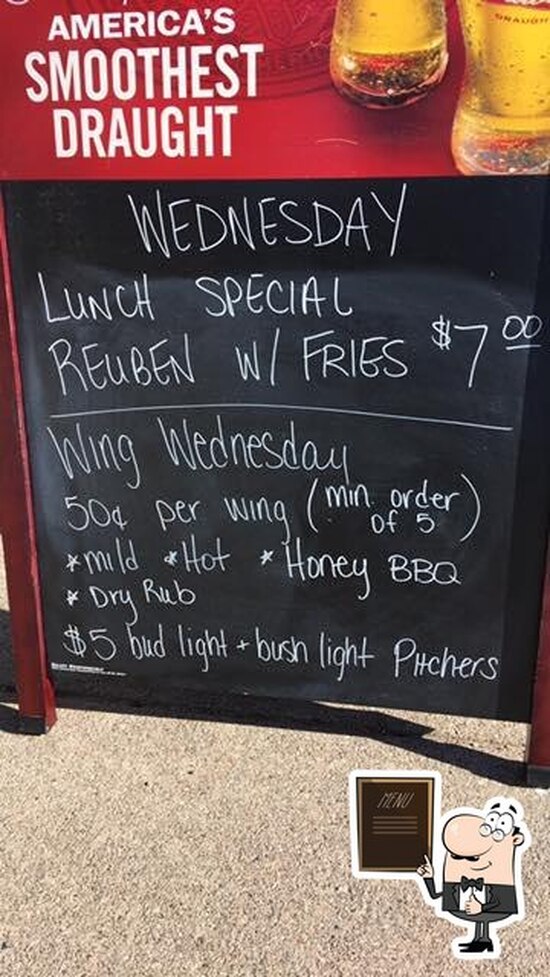 AMERICA'S
SMOOTHEST
DRAUGHT
DRAUGHT
WEDNESDAY
LUNCH SPECIAL
REUBEN W/ FRIES $7 00
Wing Wednesday
50¢ per wing (min. order of 5)
* mild * Hot * Honey BBQ
* Dry Rub
$5 bud light + bush light Pitchers
MENU